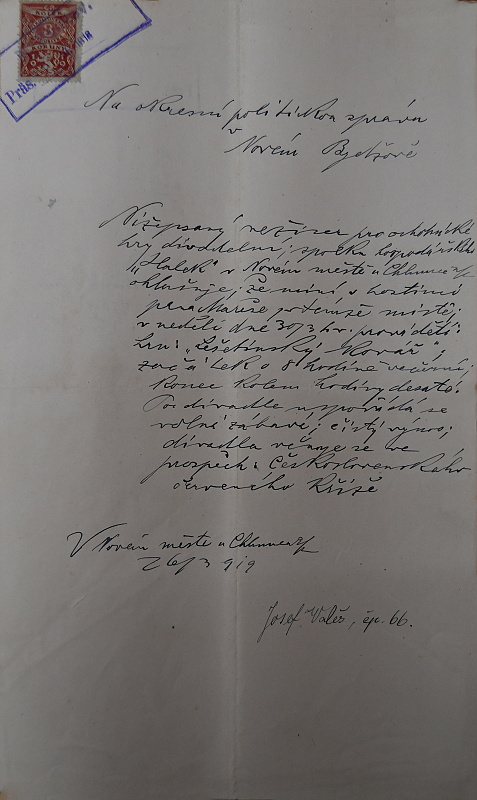 KOLEK
3
KORUNY
Präs.
Na okresní politickou správu
v
Novém Bydžově
Nížepsaný režizer pro ochotnické
hry divadelní, spolku hospodářského
„Hálek" v Novém městě u Chlumce n/C
ohlašuje; že míní v hostinci
pana Mareše v témže místě;
v neděli dne 30/3 t.r. prováděti:
hru: „Lešetínský kovář";
začátek o 8 hodině večerní;
konec kolem hodiny desáté.
Po divadle uspořádá se
volná zábava; čistý výnos;
divadla věnuje se ve
prospěch: Československého
červeného Kříže
V Novém městě u Chlumce n/C
26/3 919
Josef Valeš, čp. 66.